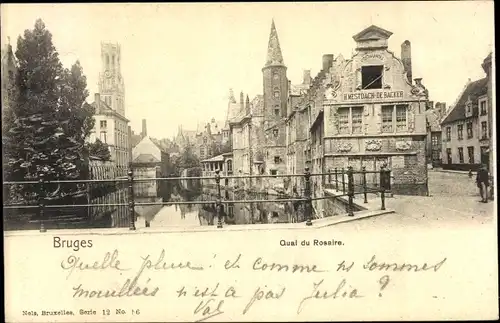 H. MESTDAGH-DE BACKER
Bruges
Quai du Rosaire.
Quelle pluie! et comme ns sommes
mouillées n'est-ce pas Julia?
Val
Nels, Bruxelles, Serie 12 No. 16